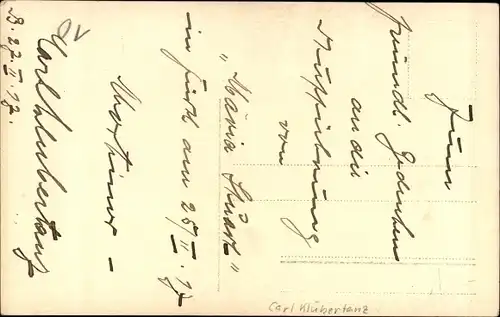 Zum
freundl. Gedenken
an die
Aufführung
von
"Maria Stuart"
in Fürth am 25/II. 17.
Mortimer –
Karl Klubertanz
B. 27. II. 17.
Carl Klubertanz